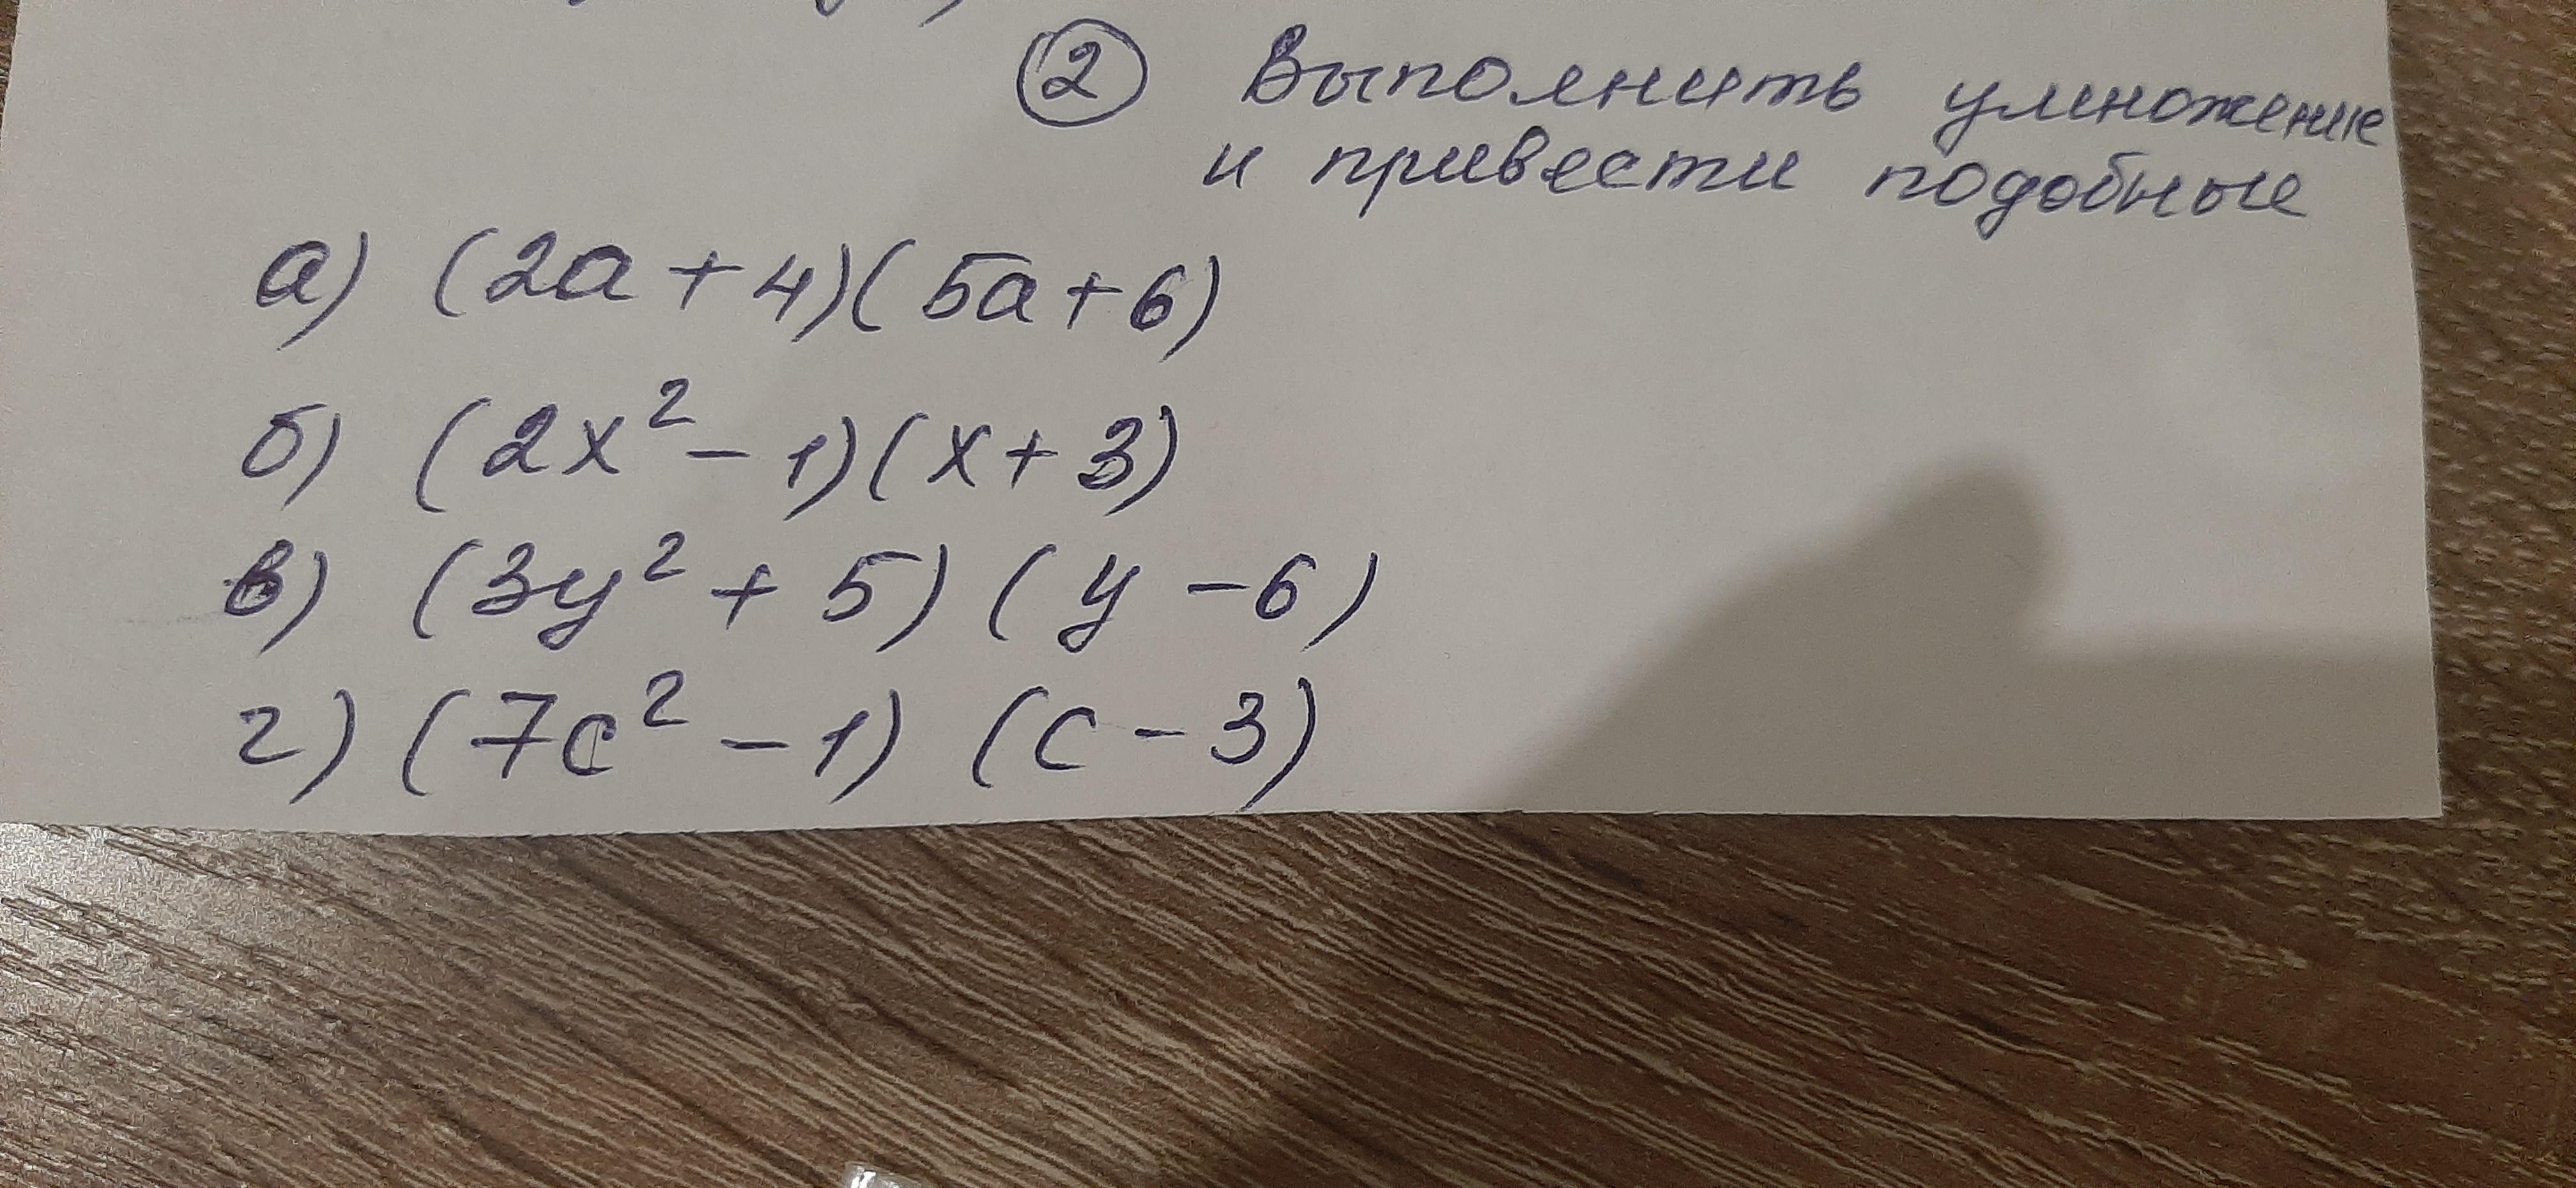 ② Выполнить умножение
и привести подобные
а) (2a + 4)(5a + 6)
б) (2x² - 1)(x + 3)
в) (3y² + 5) (y - 6)
г) (7c² - 1) (c - 3)